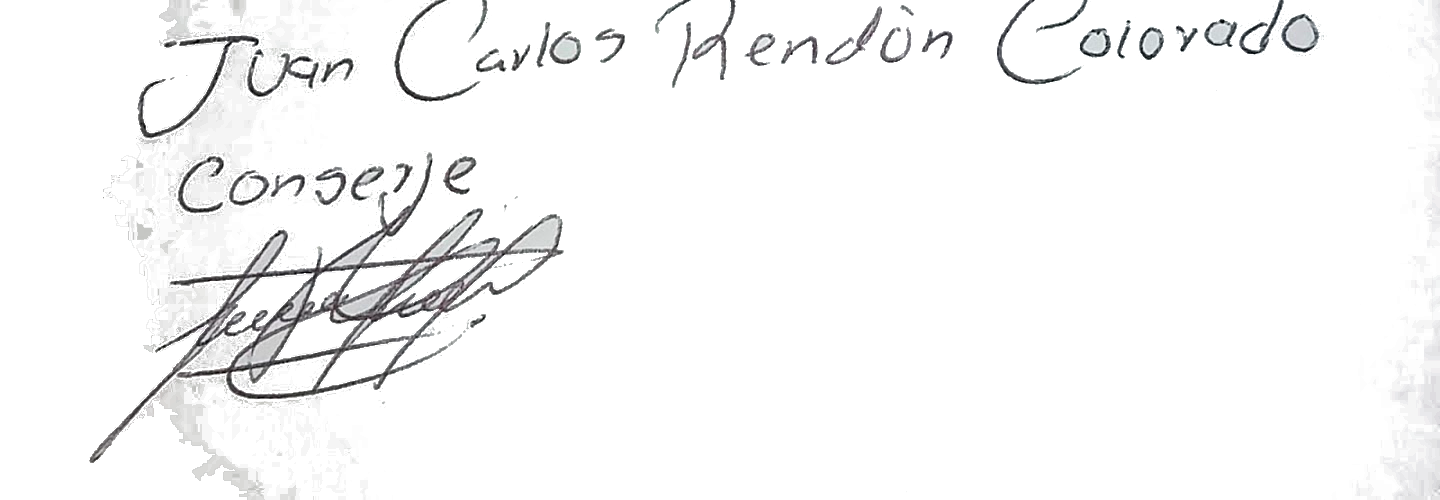 Juan Carlos Rendón Colorado
Conserje